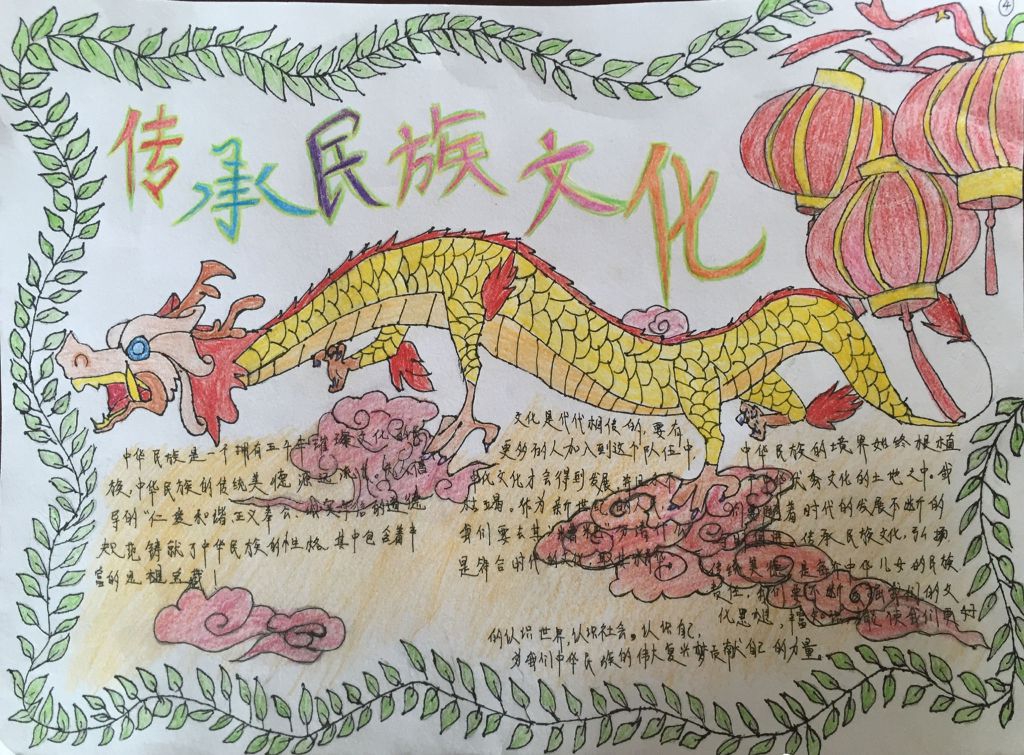 ④
传承民族文化
中华民族是一个拥有五千年璀璨文化的
族,中华民族的传统美德源远流长
导的“仁爱和谐正义奉公、诚实守信的道德
规范,铸就了中华民族的性格,其中包含着丰
富的思想宝藏!
文化是代代相传的,要有
更多的人加入到这个队伍中
文化才会得到发展
作为新世纪的人
我们要去其糟粕
是符合时代的文化
中华民族的境界始终根植
文化的土地之中。我
们 着时代的发展不断的
传承民族文化,弘扬
传统美德,是每个中华儿女的民族
责任,我们要不断 的文
化思想,丰 使我们更好
的认识世界,认识社会。认识自己,
为我们中华民族的伟大复兴梦贡献自己的力量。